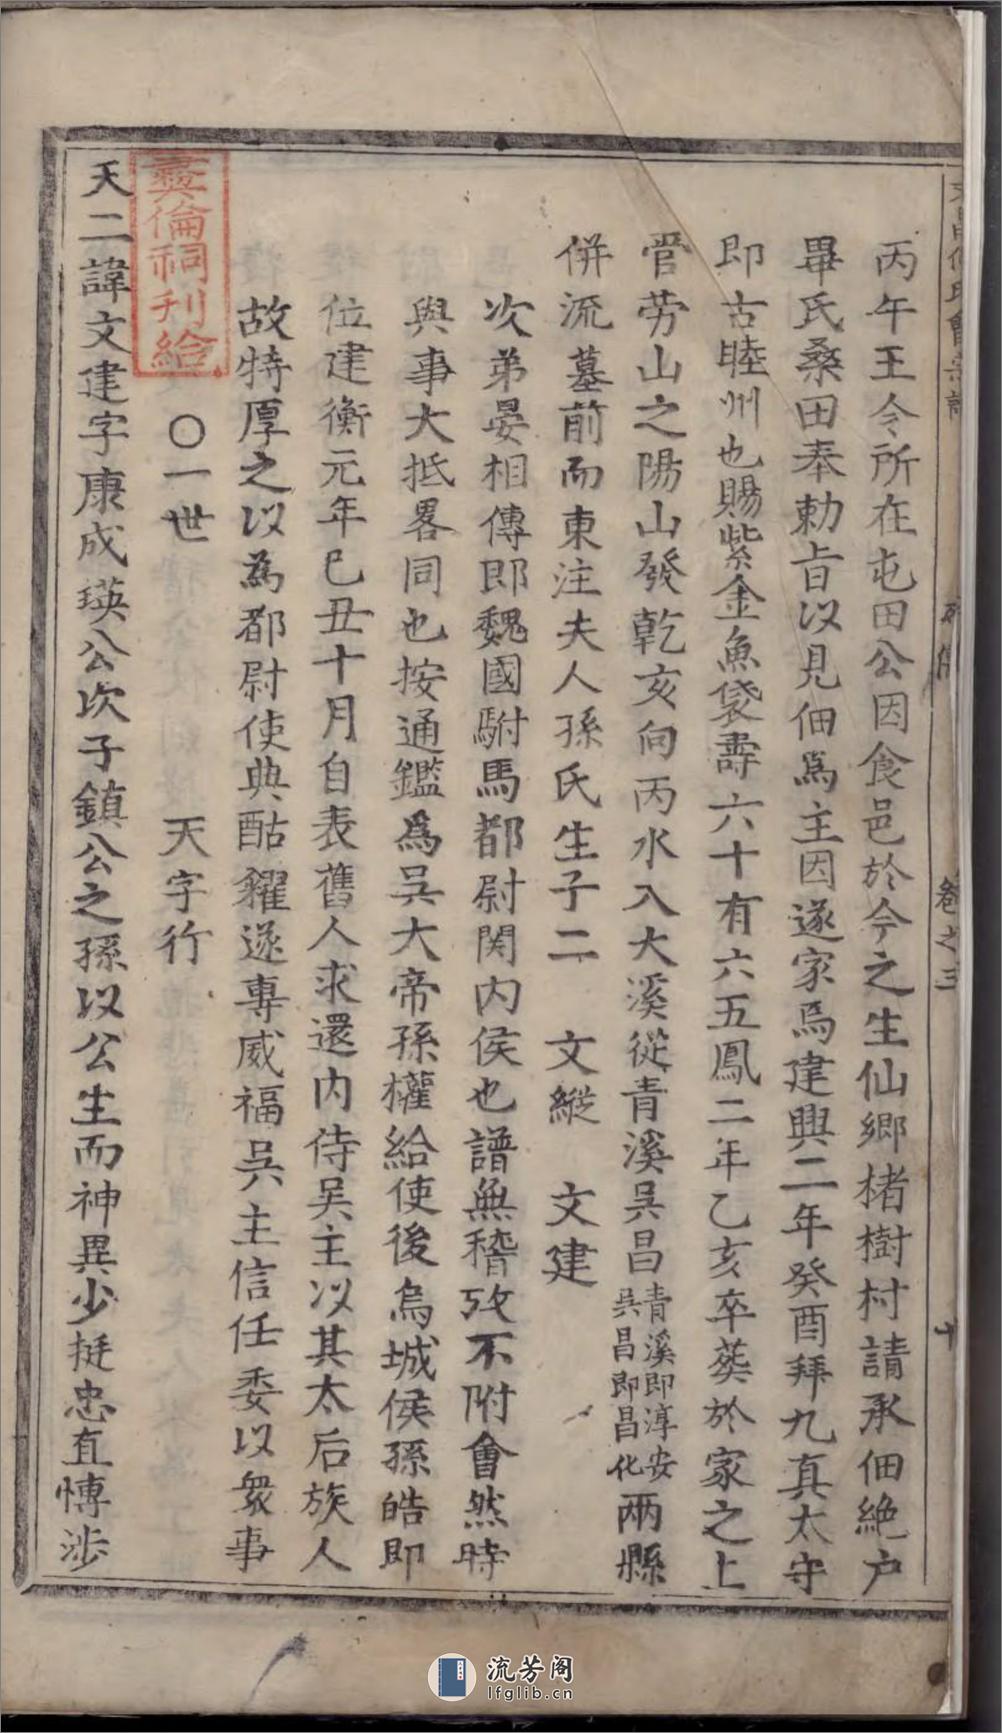 丙午王令所在屯田公因食邑於今之生仙鄉楮樹村請承佃絶户
畢氏桑田奉勅旨以見佃爲主因遂家焉建興二年癸酉拜九真太守
即古睦州也賜紫金魚袋壽六十有六五鳳二年乙亥卒葬於家之上
管勞山之陽山發乾亥向丙水入大溪從青溪吳昌青溪即淳安吳昌即昌化兩縣
併流墓前而東注夫人孫氏生子二 文縱 文建
次弟晏相傳即魏國駙馬都尉関内侯也譜無稽攷不附會然時
與事大抵畧同也按通鑑爲吳大帝孫權給使後烏城侯孫皓即
位建衡元年巳丑十月自表舊人求還内侍吴主以其太后族人
故特厚之以為都尉使典酤糴遂專威福吳主信任委以衆事
〇一世 天字行
天二諱文建字康成瑛公次子鎮公之孫以公生而神異少挺忠直愽涉
彜倫祠刋給
卷之三
十
流芳阁
lfglib.cn